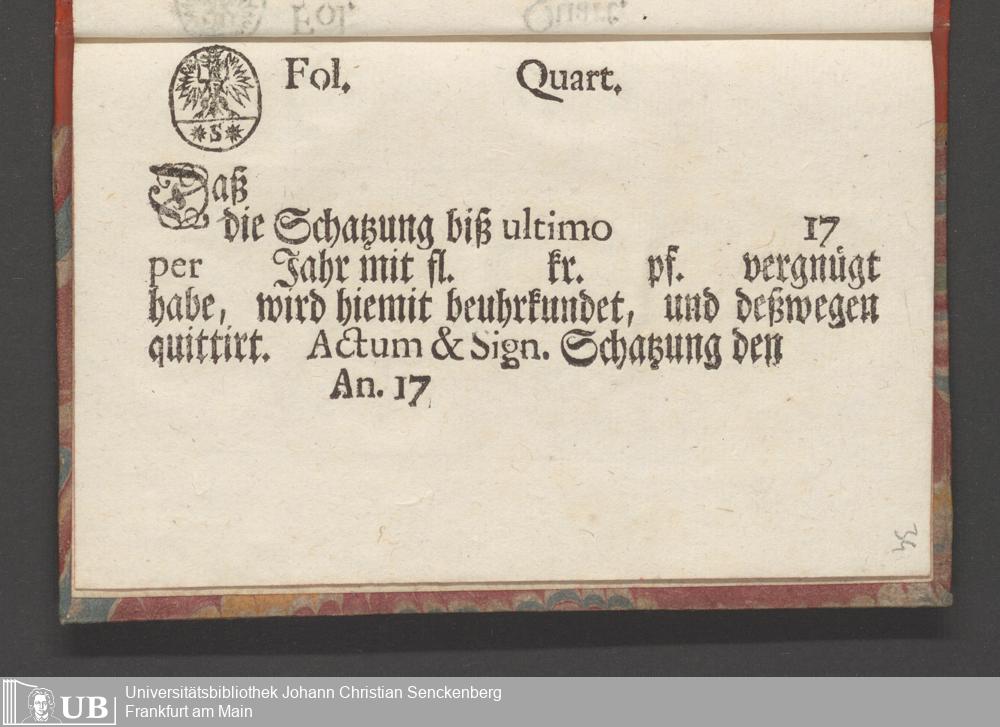 Fol. Quart.
S
Daß
die Schatzung biß ultimo 17
per Jahr mit fl. kr. pf. vergnügt
habe, wird hiemit beuhrkundet, und deßwegen
quittirt. Actum & Sign. Schatzung den
An. 17
UB Universitätsbibliothek Johann Christian Senckenberg
Frankfurt am Main